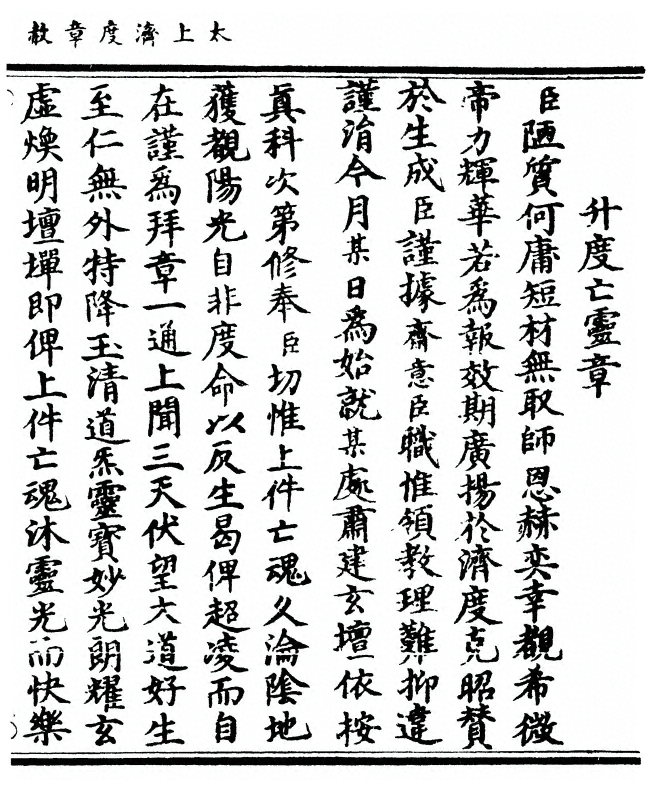 太上濟度章赦
升度亡靈章
臣陋質何庸短材無取師恩赫奕幸覩希微
帝力輝華若爲報效期廣揚於濟度克昭贊
於生成臣謹據齋意臣職惟領教理難抑違
謹涓今月某日爲始就某處肅建玄壇依按
眞科次第修奉臣切惟上件亡魂久淪陰地
獲覩陽光自非度命以反生曷俾超凌而自
在謹爲拜章一通上聞三天伏望大道好生
至仁無外特降玉清道炁靈寶妙光朗耀玄
虛煥明壇墠即俾上件亡魂沐靈光而快樂